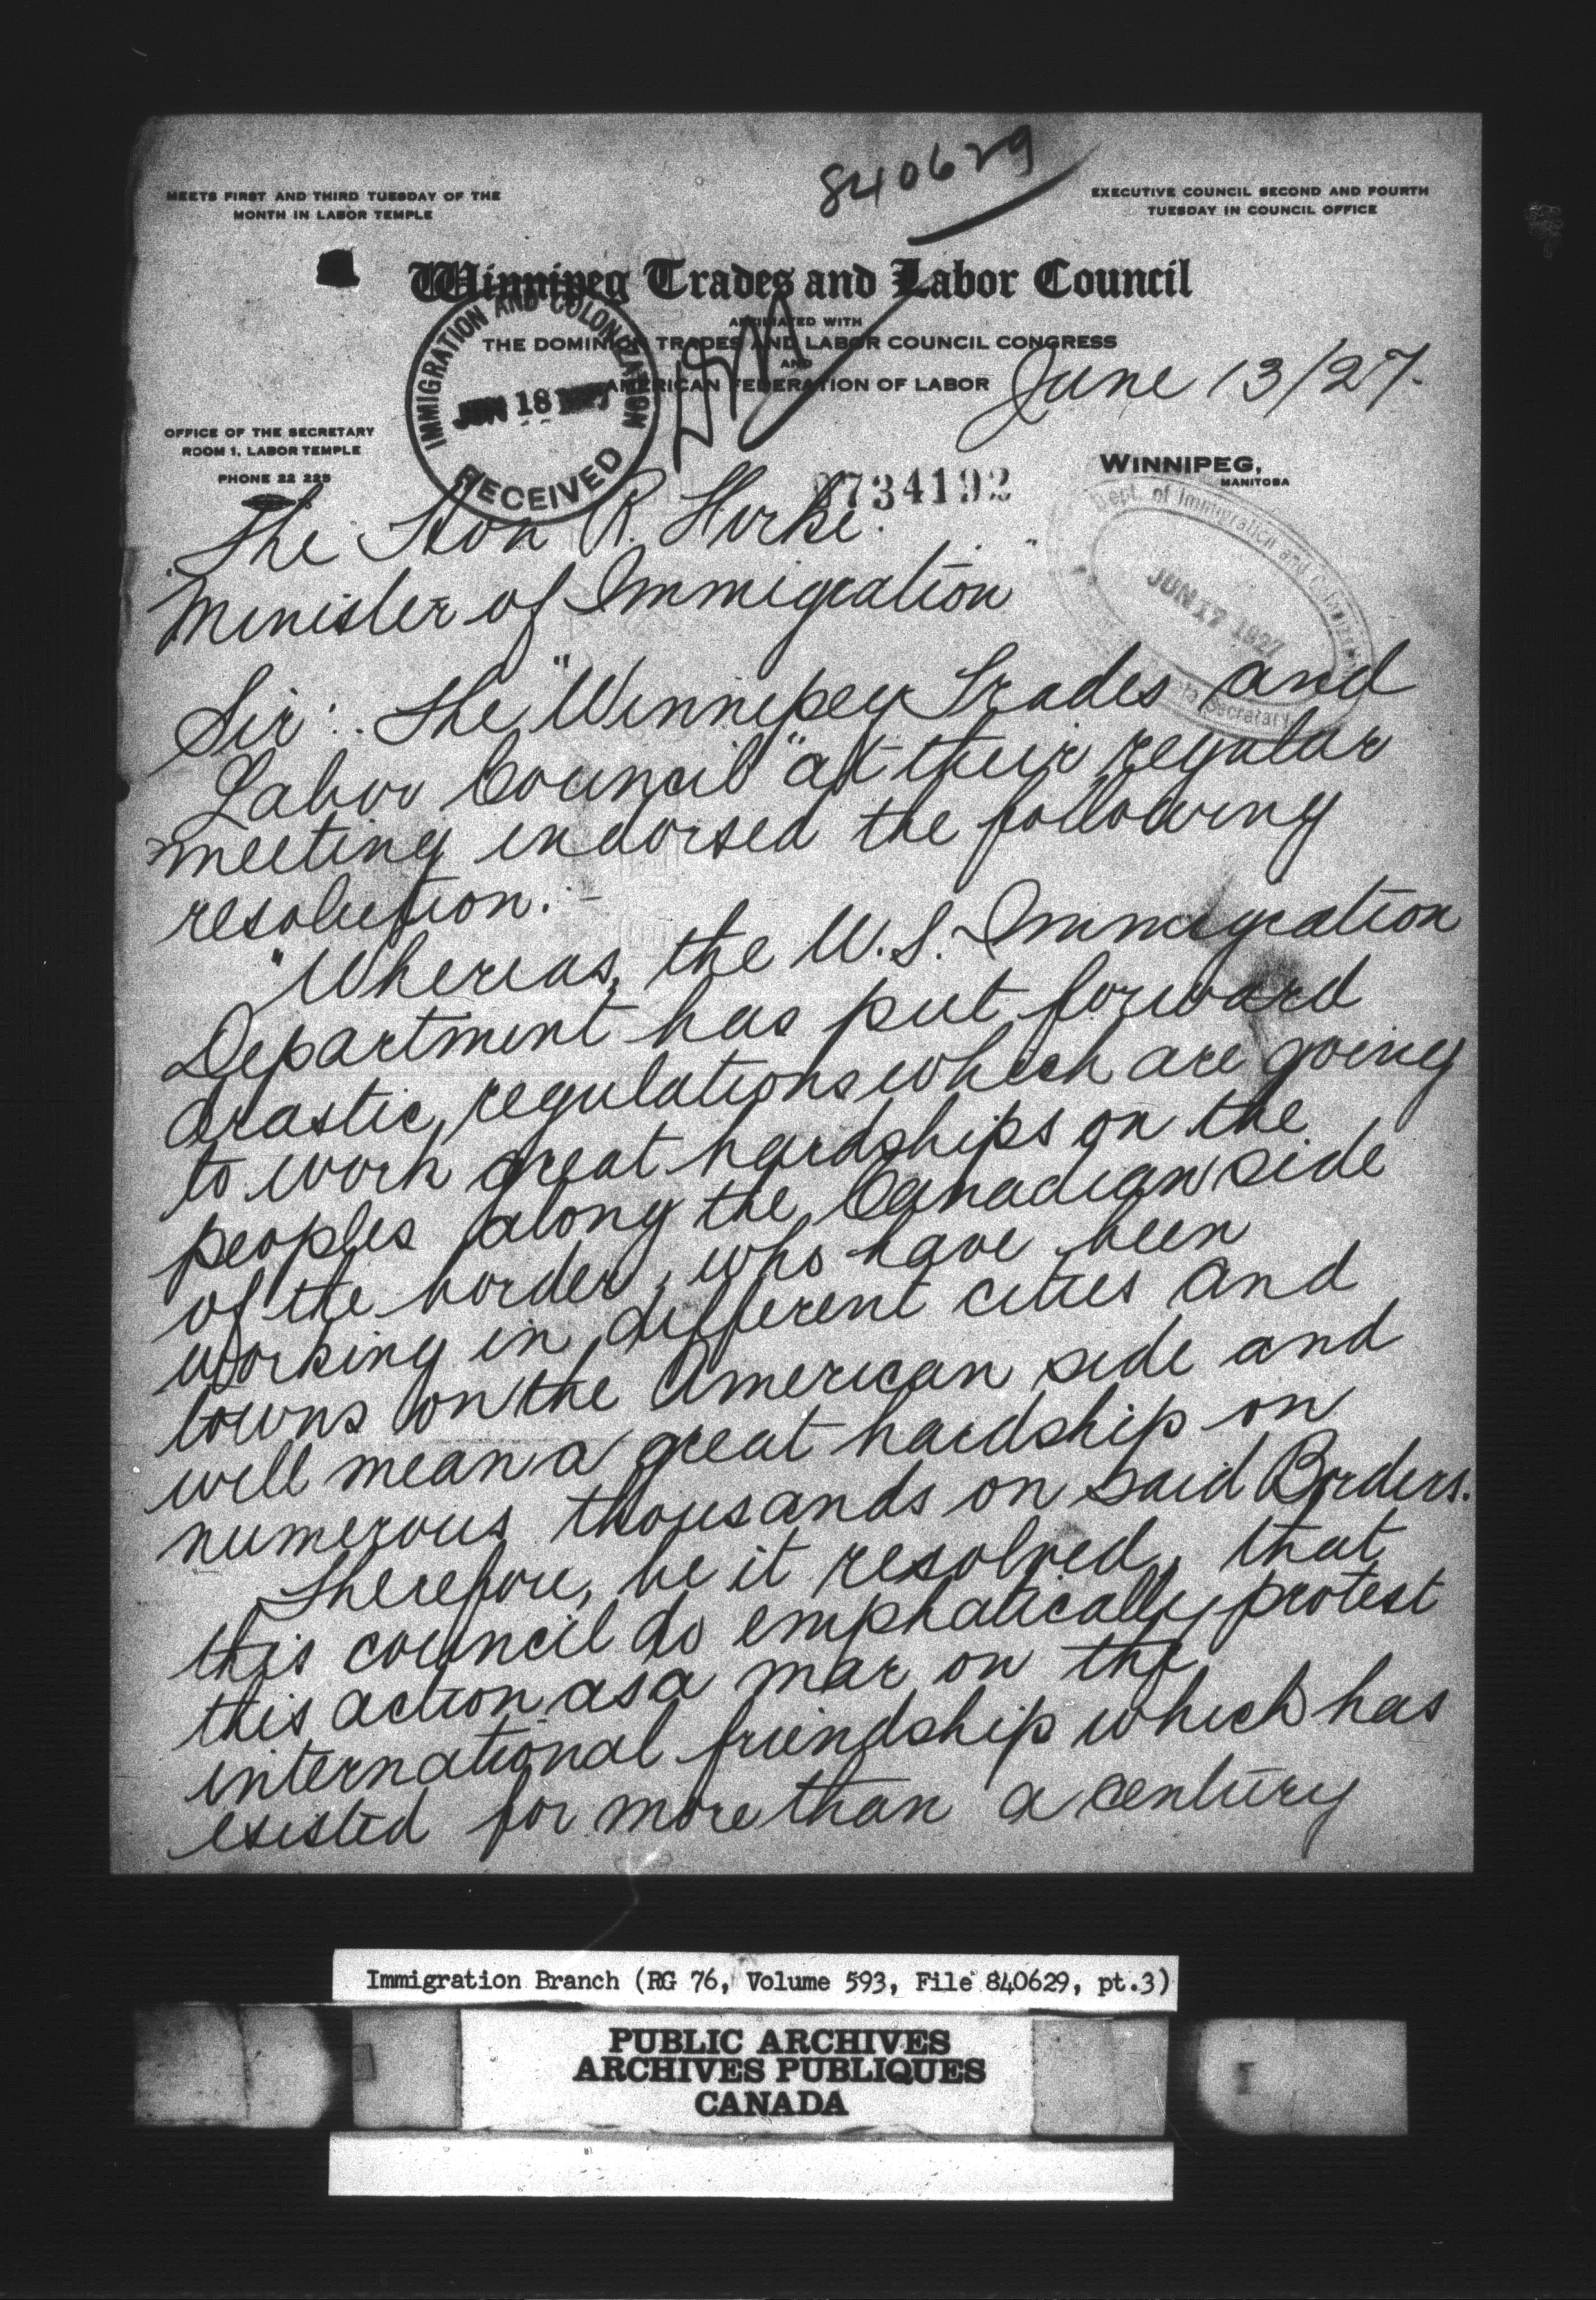 840629
MEETS FIRST AND THIRD TUESDAY OF THE
MONTH IN LABOR TEMPLE
EXECUTIVE COUNCIL SECOND AND FOURTH
TUESDAY IN COUNCIL OFFICE
Winnipeg Trades and Labor Council
AFFILIATED WITH
THE DOMINION TRADES AND LABOR COUNCIL CONGRESS
AND
AMERICAN FEDERATION OF LABOR
June 13/27.
IMMIGRATION AND COLONIZATION
JUN 18 1927
RECEIVED
OFFICE OF THE SECRETARY
ROOM 1, LABOR TEMPLE
PHONE 22 225
WINNIPEG,
MANITOBA
734192
Dept. of Immigration and Colonization
JUN 17 1927
Secretary
The Hon R. Forke.
"Minister of Immigration"
Sir:. The "Winnipeg Trades and
Labor Council" at their regular
meeting endorsed the following
resolution:-
"Whereas, the U.S. Immigration
Department has put forward
drastic, regulations which are going
to work great hardships on the
peoples along the Canadian side
of the border, who have been
working in different cities and
towns on the American side and
will mean a great hardship on
numerous thousands on said Borders.
Therefore, be it resolved, that
this council do emphatically protest
this action as a mar on the
international friendship which has
existed for more than a century
Immigration Branch (RG 76, Volume 593, File 840629, pt.3)
PUBLIC ARCHIVES
ARCHIVES PUBLIQUES
CANADA